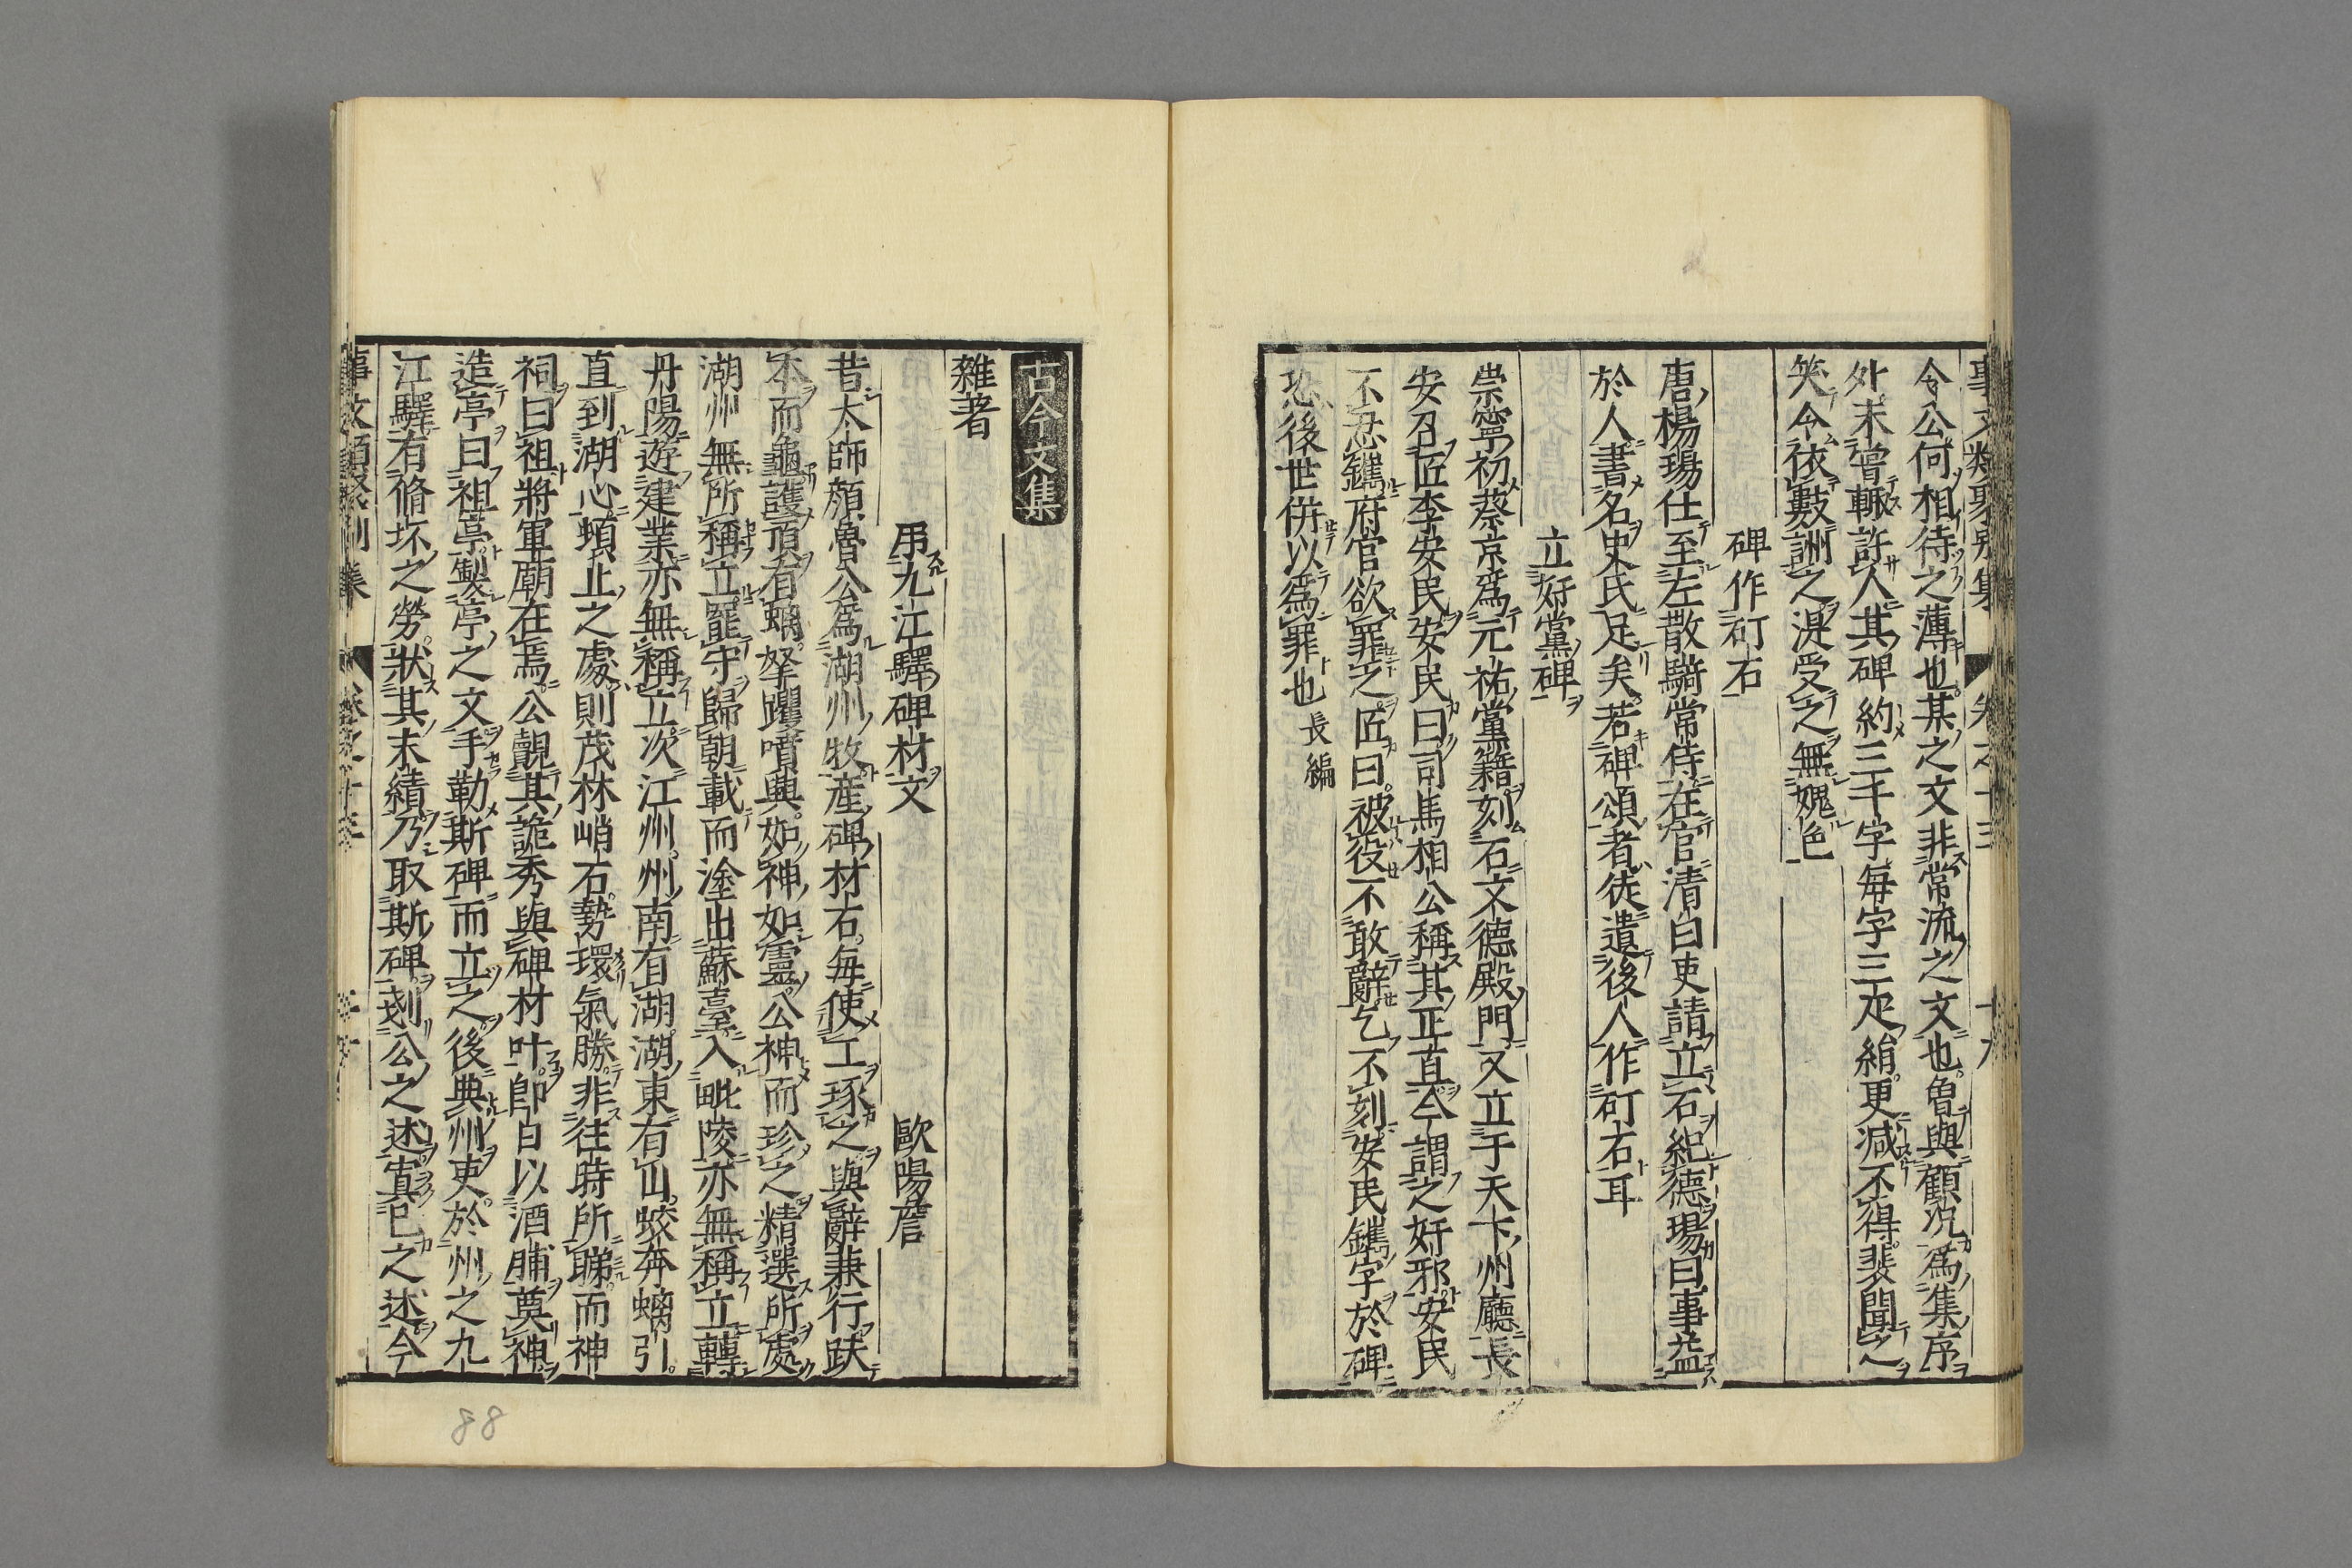 事文類聚別集 卷之十三 十九
令公何相待之薄也某之文非常流之文也魯與顧况爲集序
外未曾輙許人其碑約三千字每字三疋絹更减不得裴聞之
笑今依數酬之湜受之無媿色
碑作矴石
唐楊瑒仕至左散騎常侍在官清白吏請立石紀德瑒曰事益
於人書名史氏足矣若碑頌者徒遺後人作矴石耳
立姧黨碑
崇寧初蔡京爲元祐黨籍刻石文德殿門又立于天下州廳長
安召匠李安民安民曰司馬相公稱其正直今謂之姧邪安民
不忍鐫府官欲罪之匠曰被役不敢辭乞不刻安民鐫字於碑
恐後世併以爲罪也 長編
古今文集
雜著
弔九江驛碑材文 歐陽詹
昔太師顔魯公爲湖州牧産碑材石每使工琢之與辭兼行趺
本而龜護頂有螭拏躩噴興如神如靈公神而珍之精選所處
湖州無所稱立罷守歸朝載而塗出蘇臺入毗陵亦無稱立轉
丹陽遊建業亦無稱立次江州州南有湖湖東有山蛟奔螭引
直到湖心頓止之處則茂林峭石勢環氣勝非往時所睇而神
祠曰祖將軍廟在焉公覩其詭秀與碑材叶卽日以酒脯奠神
造亭曰祖亭製亭之文手勒斯碑而立之後典州吏於州之九
江驛有脩坏之勞狀其末績乃取斯碑剗公之述寘已之述今
事文類聚別集